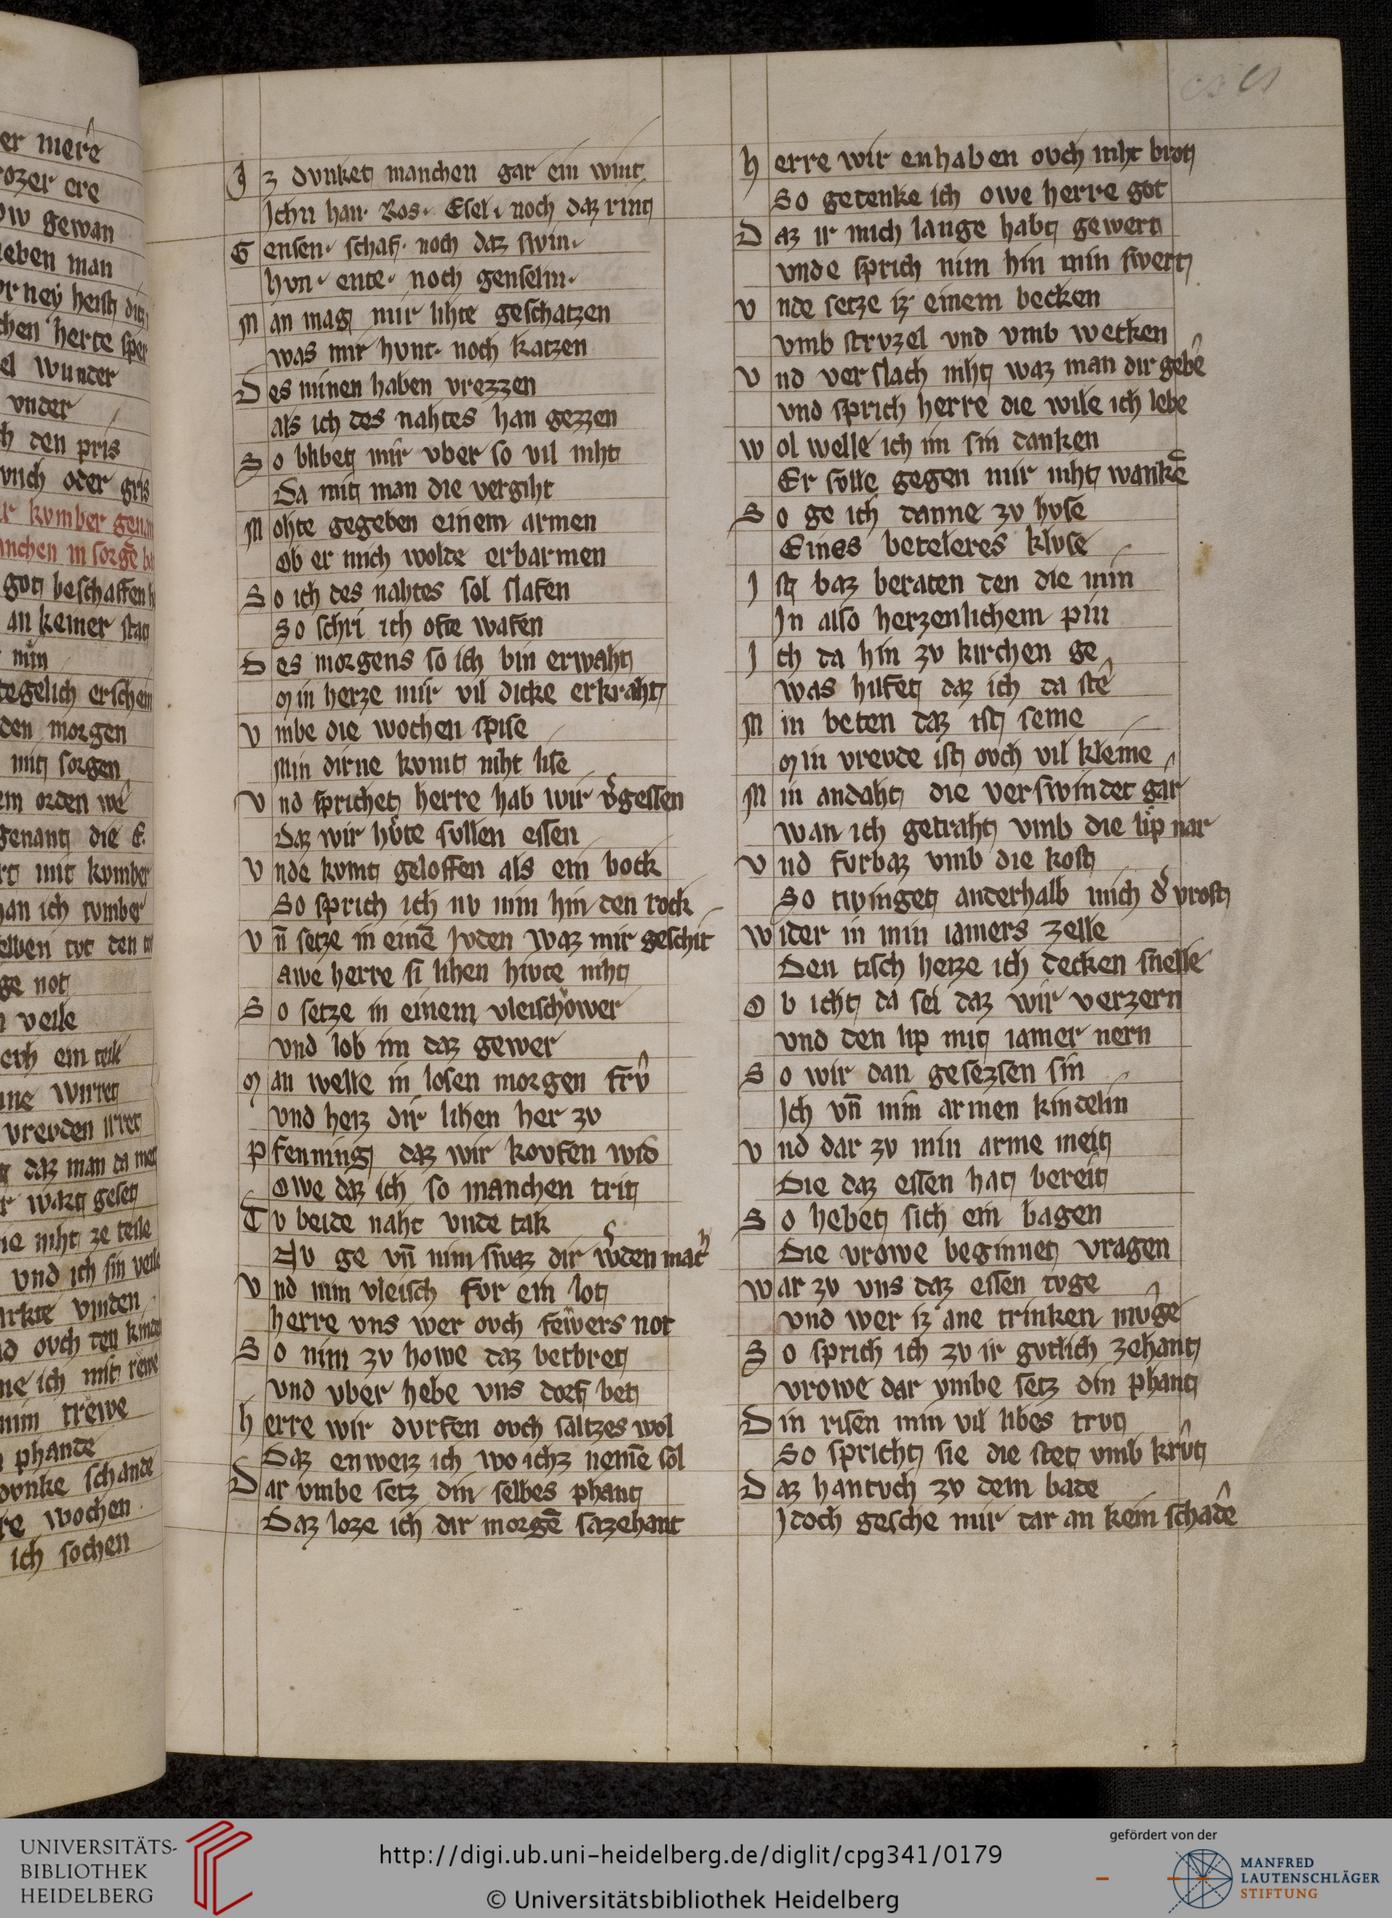 er merê
ozer ere
ow gewan
eben man
chen herte sper
el wunder
vnder
h den pris
vnch oder gris
kvmber
anchen in sorgē
got beschaffen
an keiner stat
min
tegelich erschein
den morgen
mit sorgen
em orden wê
genant die E.
rt mit kvmber
an ich tvmber
elben tvt den
ge not
veile
ein teile
wirret
vrevden irret
daz man da
wart geseit
ie niht ze teile
vnd ich sin veile
arkte vinden
ovch den kinden
ne ich mit rewe
min trewe
phande
dvnke schande
re wochen
ich sochen
Iz dvnket manchen gar ein wint
Ichn han· Ros· Esel· noch daz rint
Gensen· schaf· noch daz swin·
hvn· ente· noch genselin·
Man mag mir lihte geschatzen
was mir hvnt· noch katzen
Des minen haben vrezzen
als ich des nahtes han gezzen
So blibet mir vber so vil niht
Da mit man die vergiht
Mohte gegeben einem armen
Ob er mich wolde erbarmen
So ich des nahtes sol slafen
So schri ich ofte wafen
Des morgens so ich bin erwaht
Min herze mir vil dicke erkraht
Vmbe die wochen spise
Min dirne kvmt niht lise
Vnd sprichet herre hab wir v̾gessen
Daz wir hvte svllen essen
Vnde kvmt geloffen als ein bock
So sprich ich nv nim hin den rock
Vn̄ setze in einē Jvden waz mir geschit
Awe herre si lihen hivte niht
So setze in einem vleischower
Vnd lob im daz gewer
Man welle in losen morgen frv̂
Vnd heiz dir lihen her zv
Pfenning daz wir kovfen wid
Owe daz ich so manchen trit
Tv beide naht vnde tak
Nv ge vn̄ nim swaz dir w̾den mac
Vnd nim vleisch fvr ein lot
Herre vns wer ovch fewers not
So nim zv howe daz betbret
Vnd vber hebe vns dorf bet
Herre wir dvrfen ovch saltzes wol
Daz enweiz ich wo ichz nemē sol
Dar vmbe setz din selbes phant
Daz loze ich dir morgē sazehant
Herre wir enhaben ovch niht brot
So gedenke ich owe herre got
Daz ir mich lange habt gewert
Vnde sprich nim hin min swert
Vnde setze iz einem becken
Vmb strvzel vnd vmb wecken
Vnd ver slach niht waz man dir gebē
Vnd sprich herre die wile ich lebe
Wol welle ich im sin danken
Er svlle gegen mir niht wankē
So ge ich danne zv hvse
Eines beteleres klvse
Ist baz beraten den die min
In also herzenlichem pin
Ich da hin zv kirchen ge
Was hilfet daz ich da stê
Min beten daz ist seine
Min vrevde ist ovch vil kleine
Min andaht die verswindet gar
Wan ich getraht vmb die lip nar
Vnd fvrbaz vmb die kost
So twinget anderhalb mich d̾ vrost
Wider in min iamers zelle
Den tisch heize ich decken snelle
Ob icht da sei daz wir verzern
Vnd den lip mit iamer nern
So wir dan gesezsen sin
Ich vn̄ min armen kindelin
Vnd dar zv min arme meit
Die daz essen hat bereit
So hebet sich ein bagen
Die vrowe beginnet vragen
War zv vns daz essen tvge
Vnd wer iz ane trinken mvge
So sprich ich zv ir gvtlich zehant
Vrowe dar vmbe setz din phant
Din risen min vil libes trvt
So spricht sie die stet vmb krv̂t
Daz hantvch zv dem bade
Idoch gesche mir dar an kein schadē
UNIVERSITÄTS-
BIBLIOTHEK
HEIDELBERG
http://digi.ub.uni-heidelberg.de/diglit/cpg341/0179
© Universitätsbibliothek Heidelberg
gefördert von der
MANFRED
LAUTENSCHLÄGER
STIFTUNG